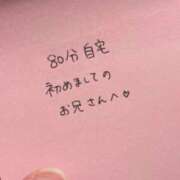 80分自宅
初めましての
お兄さんへ♡